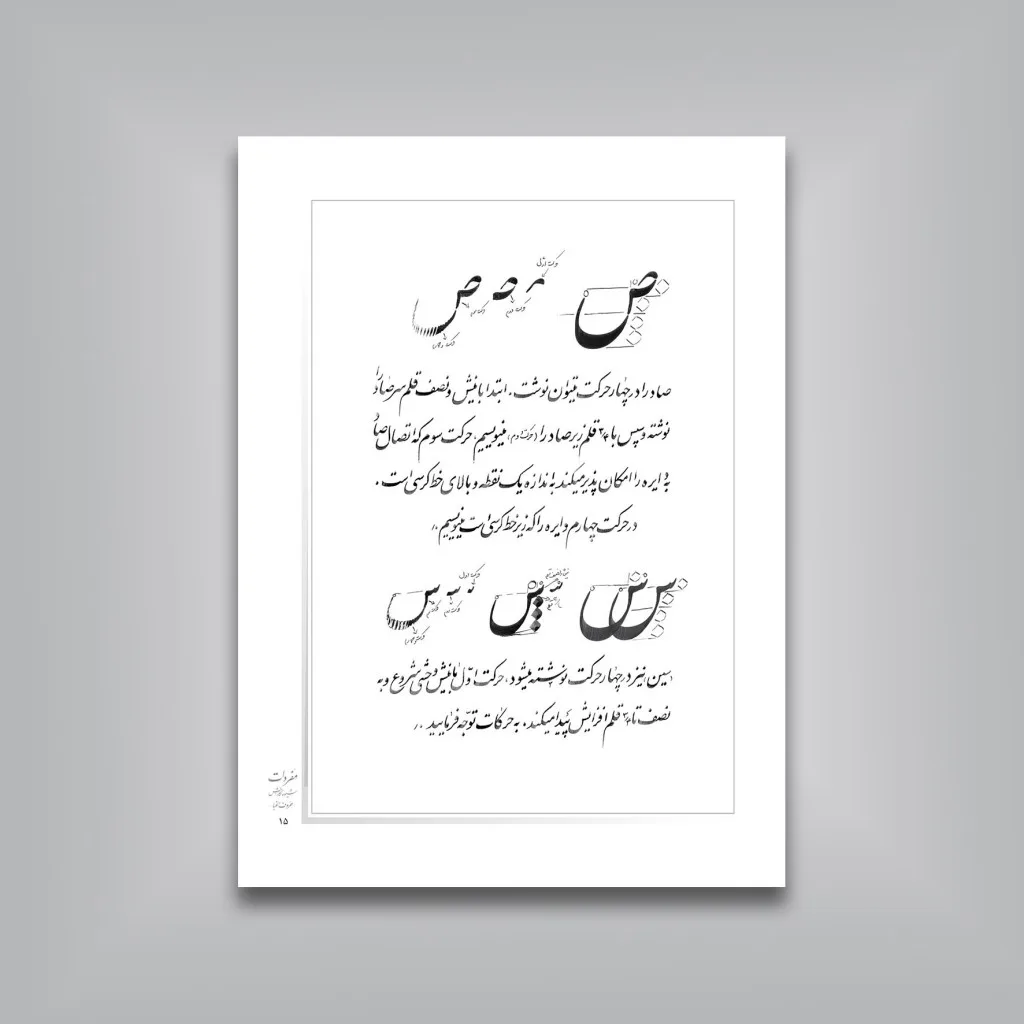 ص
حرکت اول
ص
حرکت سوم
حرکت دوم
حرکت چهارم
صاد را در چهار حرکت میتوان نوشت. ابتدا با نیش و نصف قلم سر صاد را
نوشته و سپس با ۳/۴ قلم زیر صاد را (حرکت دوم) مینویسیم، حرکت سوم که اتصال صاد
به دایره را امکان پذیر میکند به اندازه یک نقطه و بالای خط کرسی است.
در حرکت چهارم دایره را که زیر خط کرسی است مینویسیم.
س س
س
س
حرکت اول
حرکت دوم
حرکت سوم
حرکت چهارم
سین نیز در چهار حرکت نوشته میشود، حرکت اوّل با نیش وحشی شروع و به
نصف تا ۳/۴ قلم افزایش پیدا میکند. به حرکات توجّه فرمایید.
مفردات
۱۵